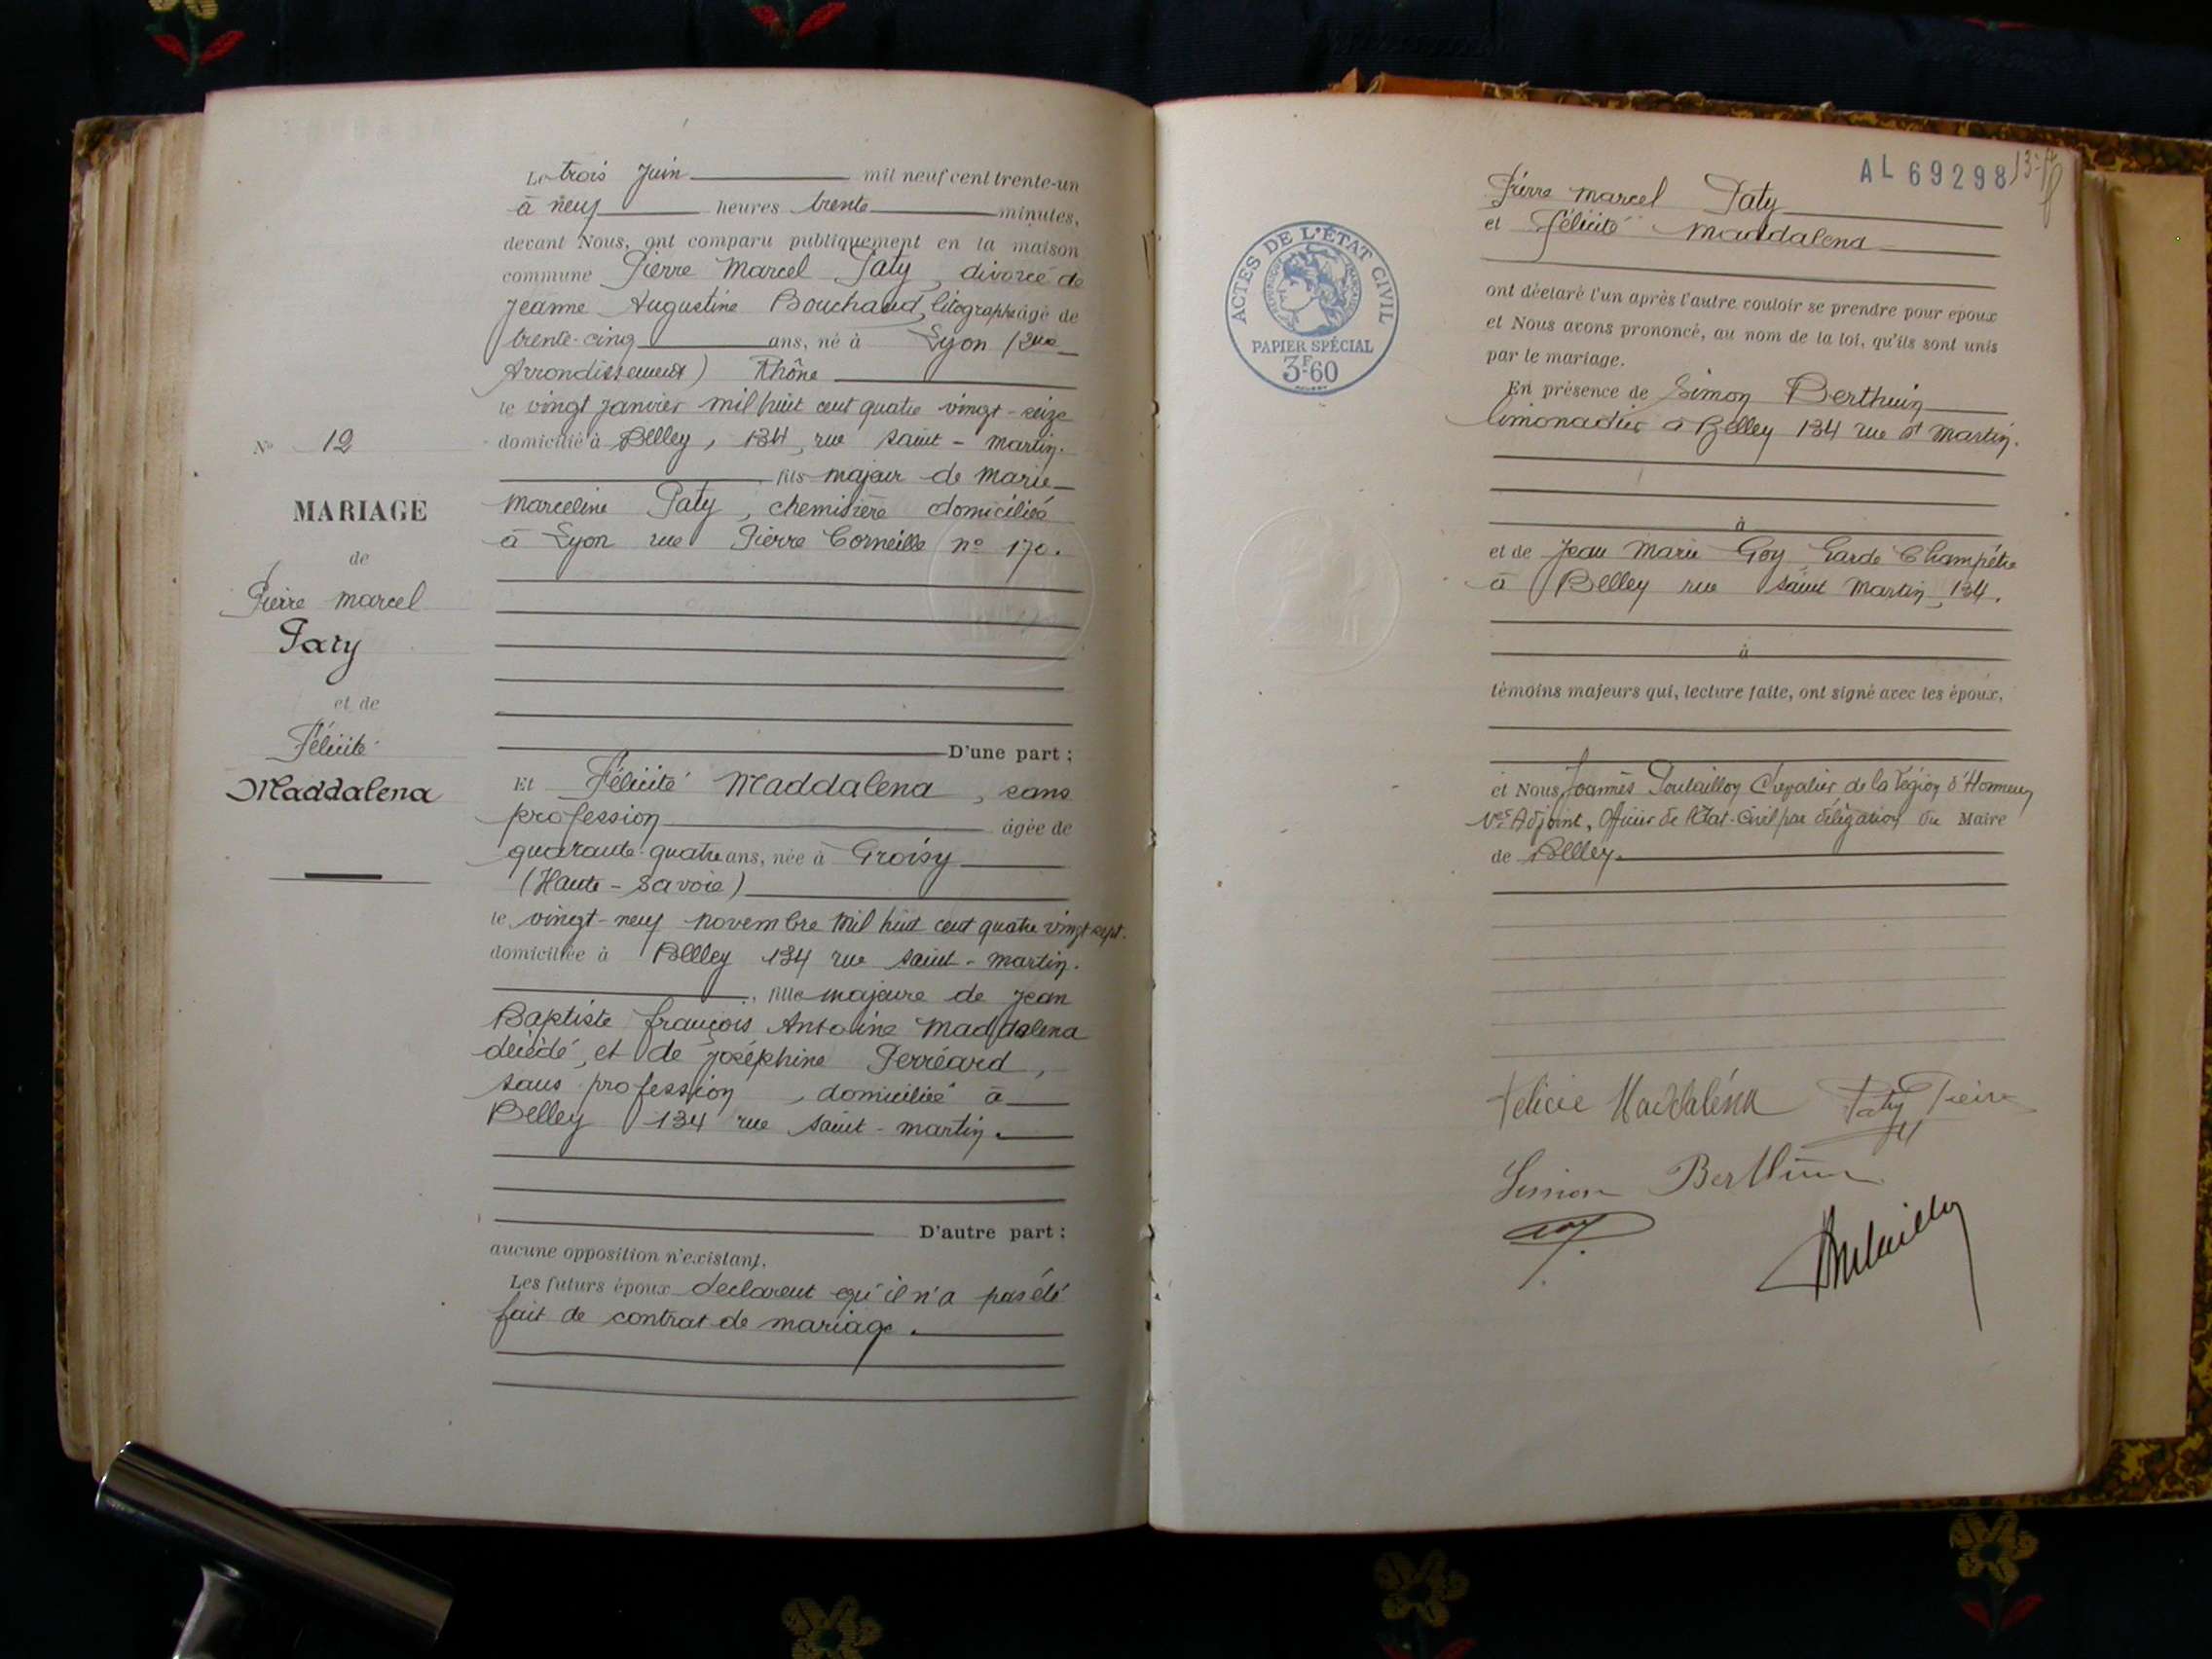 Le trois Juin mil neuf cent trente-un
à neuf heures trente minutes,
devant Nous, ont comparu publiquement en la maison
commune Pierre Marcel Paty, divorcé de
Jeanne Augustine Bouchaud, litographe âgé de
trente-cinq ans, né à Lyon (2me
Arrondissement) Rhône
le vingt janvier mil huit cent quatre vingt-seize
domicilié à Belley, 134, rue saint-martin.
fils majeur de Marie
Marceline Paty, chemisière domiciliée
à Lyon rue Pierre Corneille no 170.
D'une part ;
Et Félicité Maddalena, sans
profession âgée de
quarante-quatre ans, née à Groisy
(Haute-Savoie)
le vingt-neuf novembre mil huit cent quatre vingt sept.
domiciliée à Belley 134 rue saint-martin.
, fille majeure de Jean
Baptiste françois Antoine Maddalena
décédé, et de Joséphine Perréard,
sans profession, domiciliée à
Belley 134 rue saint-martin.
D'autre part ;
aucune opposition n'existant.
Les futurs époux déclarent qu'il n'a pas été
fait de contrat de mariage.
No 12
MARIAGE
de
Pierre marcel
Paty
et de
Félicité
Maddalena
AL 69298
Pierre Marcel Paty
et Félicité Maddalena
ont déclaré l'un après l'autre vouloir se prendre pour époux
et Nous avons prononcé, au nom de la loi, qu'ils sont unis
par le mariage.
En présence de Simon Berthuin
limonadier à Belley 134 rue St Martin.
à
et de Jean Marie Goy Garde Champêtre
à Belley rue saint Martin, 134.
à
témoins majeurs qui, lecture faite, ont signé avec les époux,
et Nous, Joannès Poulaillon Chevalier de la Légion d'Honneur
1er Adjoint, Officier de l'Etat-Civil par délégation du Maire
de Belley.
ACTES DE L'ÉTAT CIVIL
RÉPUBLIQUE FRANÇAISE
PAPIER SPÉCIAL
3F60
Felicie Maddaléna Paty Pierre
Simon Berthuin
Goy
Poulaillon